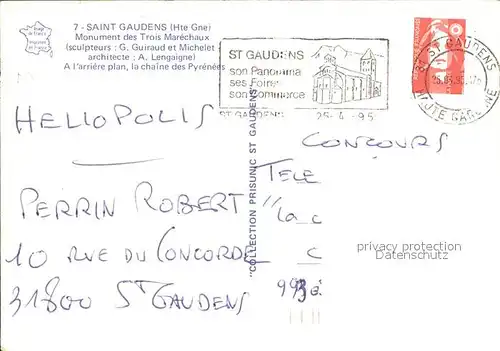 7 - SAINT GAUDENS (Hte Gne)
Monument des Trois Maréchaux
(sculpteurs : G. Guiraud et Michelet -
architecte : A. Lengaigne)
A l'arrière plan, la chaîne des Pyrénées
ST GAUDENS
son Panorama
ses Foires
son Commerce
ST GAUDENS 25-4-95
31 ST GAUDENS
HAUTE GARONNE
HELIOPOLIS
CONCOURS
TELE
PERRIN ROBERT
10 RUE DU CONCORDE
31800 ST GAUDENS
"COLLECTION PRISUNIC ST GAUDENS"
privacy protection
Datenschutz